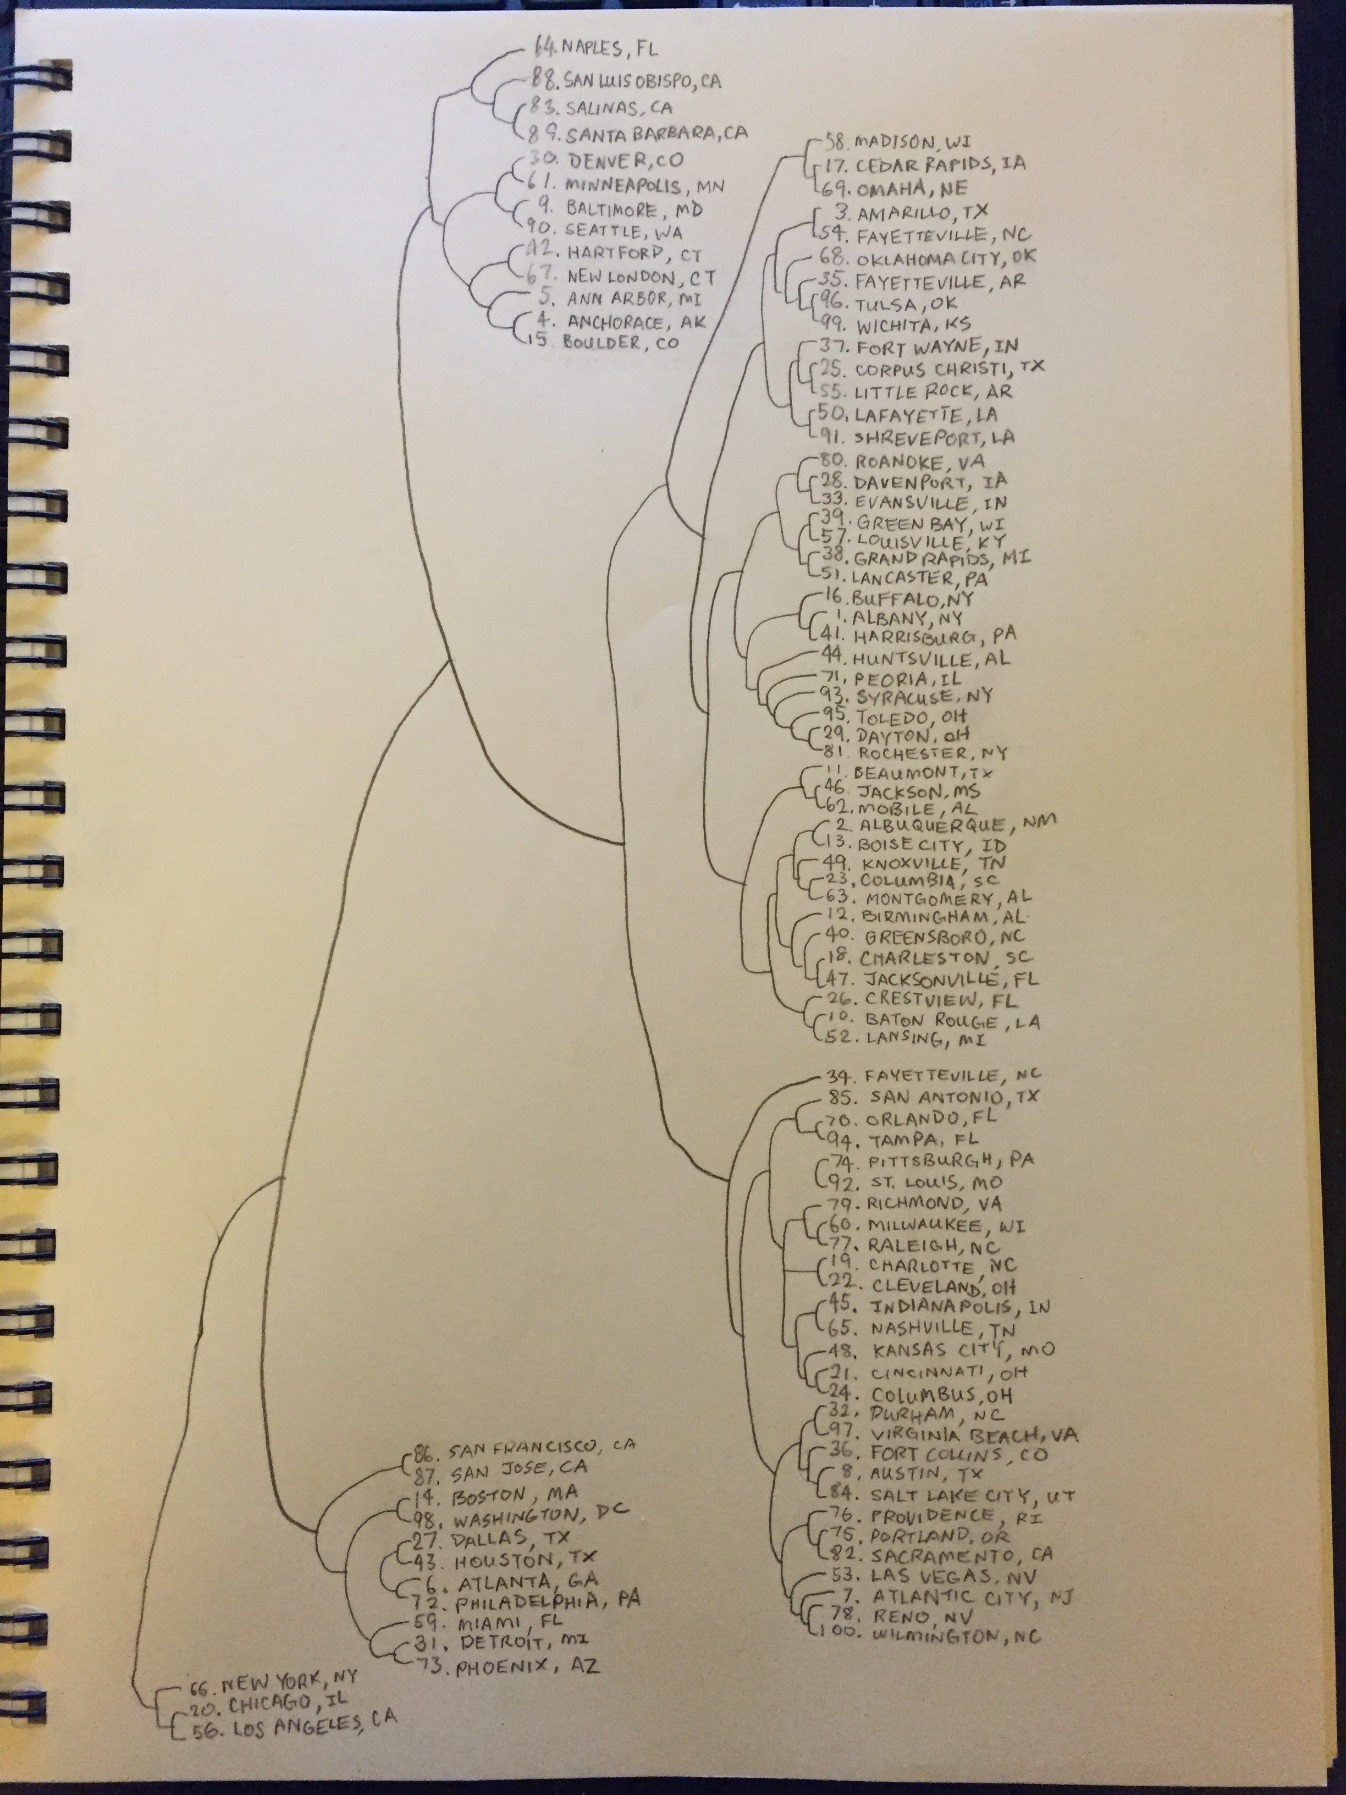 64. NAPLES, FL
88. SAN LUIS OBISPO, CA
83. SALINAS, CA
89. SANTA BARBARA, CA
30. DENVER, CO
61. MINNEAPOLIS, MN
9. BALTIMORE, MD
90. SEATTLE, WA
42. HARTFORD, CT
67. NEW LONDON, CT
5. ANN ARBOR, MI
4. ANCHORACE, AK
15. BOULDER, CO
58. MADISON, WI
17. CEDAR RAPIDS, IA
69. OMAHA, NE
3. AMARILLO, TX
54. FAYETTEVILLE, NC
68. OKLAHOMA CITY, OK
35. FAYETTEVILLE, AR
96. TULSA, OK
99. WICHITA, KS
37. FORT WAYNE, IN
25. CORPUS CHRISTI, TX
55. LITTLE ROCK, AR
50. LAFAYETTE, LA
91. SHREVEPORT, LA
80. ROANOKE, VA
28. DAVENPORT, IA
33. EVANSVILLE, IN
39. GREEN BAY, WI
57. LOUISVILLE, KY
38. GRAND RAPIDS, MI
51. LANCASTER, PA
16. BUFFALO, NY
1. ALBANY, NY
41. HARRISBURG, PA
44. HUNTSVILLE, AL
71. PEORIA, IL
93. SYRACUSE, NY
95. TOLEDO, OH
29. DAYTON, OH
81. ROCHESTER, NY
11. BEAUMONT, TX
46. JACKSON, MS
62. MOBILE, AL
2. ALBUQUERQUE, NM
13. BOISE CITY, ID
49. KNOXVILLE, TN
23. COLUMBIA, SC
63. MONTGOMERY, AL
12. BIRMINGHAM, AL
40. GREENSBORO, NC
18. CHARLESTON, SC
47. JACKSONVILLE, FL
26. CRESTVIEW, FL
10. BATON ROUGE, LA
52. LANSING, MI
34. FAYETTEVILLE, NC
85. SAN ANTONIO, TX
70. ORLANDO, FL
94. TAMPA, FL
74. PITTSBURGH, PA
92. ST. LOUIS, MO
79. RICHMOND, VA
60. MILWAUKEE, WI
77. RALEIGH, NC
19. CHARLOTTE, NC
22. CLEVELAND, OH
45. INDIANAPOLIS, IN
65. NASHVILLE, TN
48. KANSAS CITY, MO
21. CINCINNATI, OH
24. COLUMBUS, OH
32. DURHAM, NC
97. VIRGINIA BEACH, VA
36. FORT COLLINS, CO
8. AUSTIN, TX
84. SALT LAKE CITY, UT
76. PROVIDENCE, RI
75. PORTLAND, OR
82. SACRAMENTO, CA
53. LAS VEGAS, NV
7. ATLANTIC CITY, NJ
78. RENO, NV
100. WILMINGTON, NC
86. SAN FRANCISCO, CA
87. SAN JOSE, CA
14. BOSTON, MA
98. WASHINGTON, DC
27. DALLAS, TX
43. HOUSTON, TX
6. ATLANTA, GA
72. PHILADELPHIA, PA
59. MIAMI, FL
31. DETROIT, MI
73. PHOENIX, AZ
66. NEW YORK, NY
20. CHICAGO, IL
56. LOS ANGELES, CA